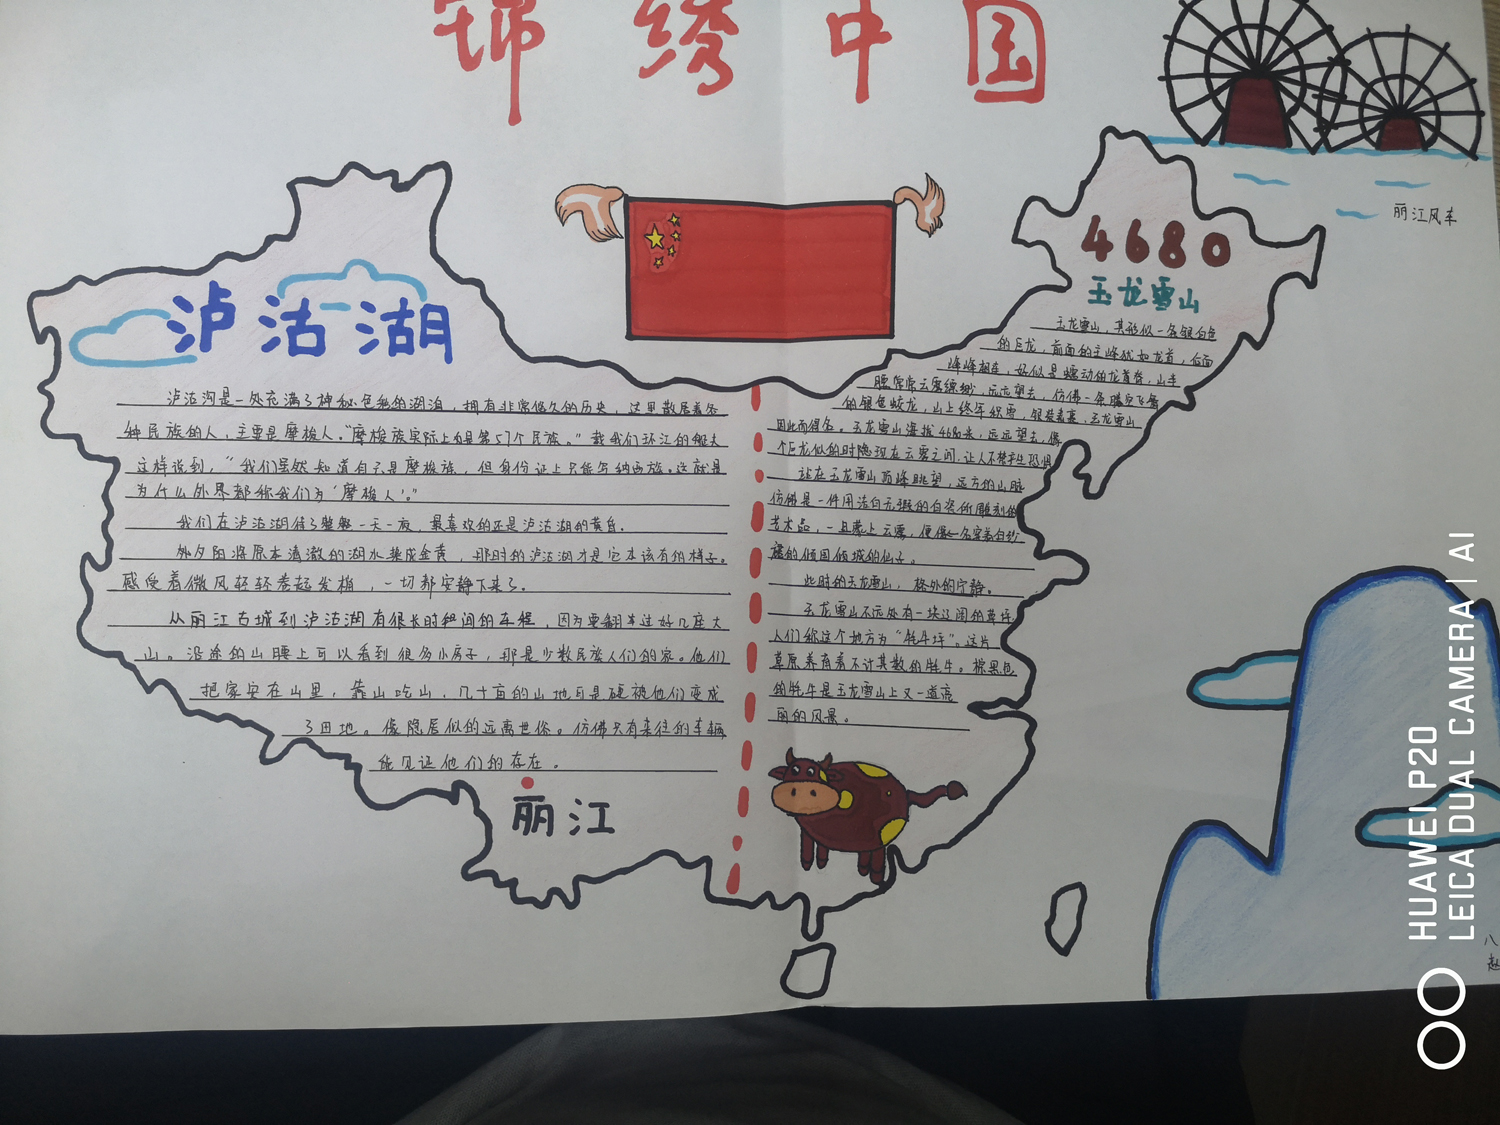 锦绣中国
丽江风车
泸沽湖
泸沽沟是一处充满了神秘色彩的湖泊，拥有非常悠久的历史，这里散居着各
种民族的人，主要是摩梭人。"摩梭族实际上自是第57个民族。"载我们环江的船夫
这样说到，"我们虽然知道自己是摩梭族，但身份证上只能写纳西族。这就是
为什么外界都称我们为'摩梭人'。"
我们在泸沽湖待了整整一天一夜，最喜欢的还是泸沽湖的黄昏。
夕阳将原本清澈的湖水染成金黄，那时的泸沽湖才是它本该有的样子。
感受着微风轻轻卷起发梢，一切都安静下来了。
从丽江古城到泸沽湖有很长时间的车程，因为要翻车过好几座大
山。沿途的山腰上可以看到很多小房子，那是少数民族人们的家。他们
把家安在山里，靠山吃山，几十亩的山地可是硬被他们变成
了田地。像隐居似的远离世俗。仿佛只有来往的车辆
能见证他们的存在。
丽江
4680
玉龙雪山
玉龙雪山，其形似一条银白色
的巨龙，前面的主峰犹如龙首，后面
峰峰相连，好似是蠕动的龙首脊，山半
腰常常云雾缭绕，远远望去，仿佛一条腾空飞舞
的银色蛟龙，山上终年积雪，银装素裹，玉龙雪山
因此而得名。玉龙雪山海拔4680米，远远望去，像
个巨龙似的时隐现在云雾之间，让人不禁产生恐惧
站在玉龙雪山顶峰眺望，远方的山脉
仿佛是一件用洁白无瑕的白瓷所雕刻的
艺术品，一旦蒙上云雾，便像一名穿着白纱
裙的倾国倾城的仙子。
此时的玉龙雪山，格外的宁静。
玉龙雪山不远处有一块辽阔的草坪
人们称这个地方为"牦牛坪"。这片
草原养育着不计其数的牦牛。棕黑色
的牦牛是玉龙雪山上又一道亮
丽的风景。
八
赵
HUAWEI P20
LEICA DUAL CAMERA | AI